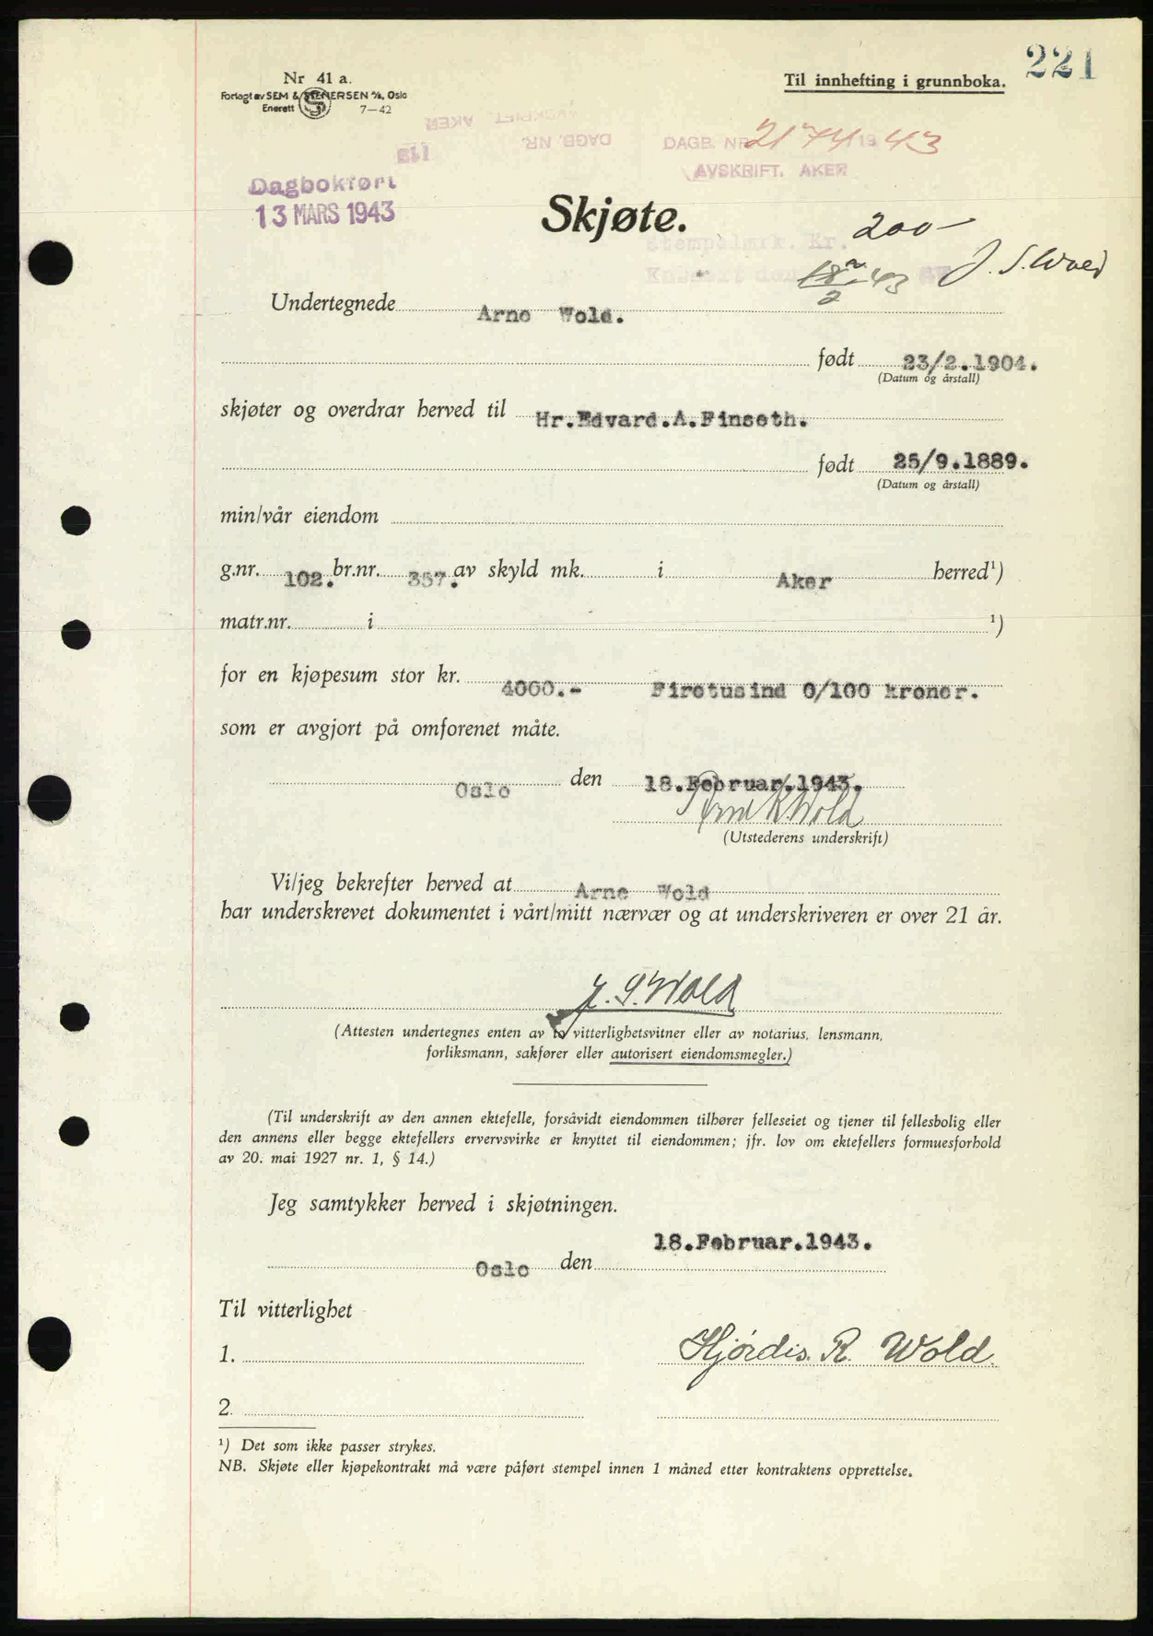 221
Nr 41 a.
Forlagt av SEM & STENERSEN A/S, Oslo
Enerett 7—42
Til innhefting i grunnboka.
DAGB. NR. 2174 19 43
AVSKRIFT. AKER
Dagbokført
13 MARS 1943
Skjøte.
Stempelmrk. Kr. 200-
18/2-43 J. S. Wold
Undertegnede Arne Wold.
født 23/2.1904.
(Datum og årstall)
skjøter og overdrar herved til Hr.Edvard.A.Finseth.
født 25/9.1889.
(Datum og årstall)
min/vår eiendom
g.nr. 102. br.nr. 357. av skyld mk. i Aker herred¹)
matr.nr. i ¹)
for en kjøpesum stor kr. 4000.- Firetusind 0/100 kroner.
som er avgjort på omforenet måte.
Oslo den 18.Februar.1943.
Arne K. Wold
(Utstederens underskrift)
Vi/jeg bekrefter herved at Arne Wold
har underskrevet dokumentet i vårt/mitt nærvær og at underskriveren er over 21 år.
J. S. Wold
(Attesten undertegnes enten av to vitterlighetsvitner eller av notarius, lensmann,
forliksmann, sakfører eller autorisert eiendomsmegler.)
(Til underskrift av den annen ektefelle, forsåvidt eiendommen tilhører felleseiet og tjener til fellesbolig eller
den annens eller begge ektefellers ervervsvirke er knyttet til eiendommen; jfr. lov om ektefellers formuesforhold
av 20. mai 1927 nr. 1, § 14.)
Jeg samtykker herved i skjøtningen.
Oslo den 18.Februar.1943.
Til vitterlighet
1. Hjördis. R. Wold.
2.
¹) Det som ikke passer strykes.
NB. Skjøte eller kjøpekontrakt må være påført stempel innen 1 måned etter kontraktens opprettelse.